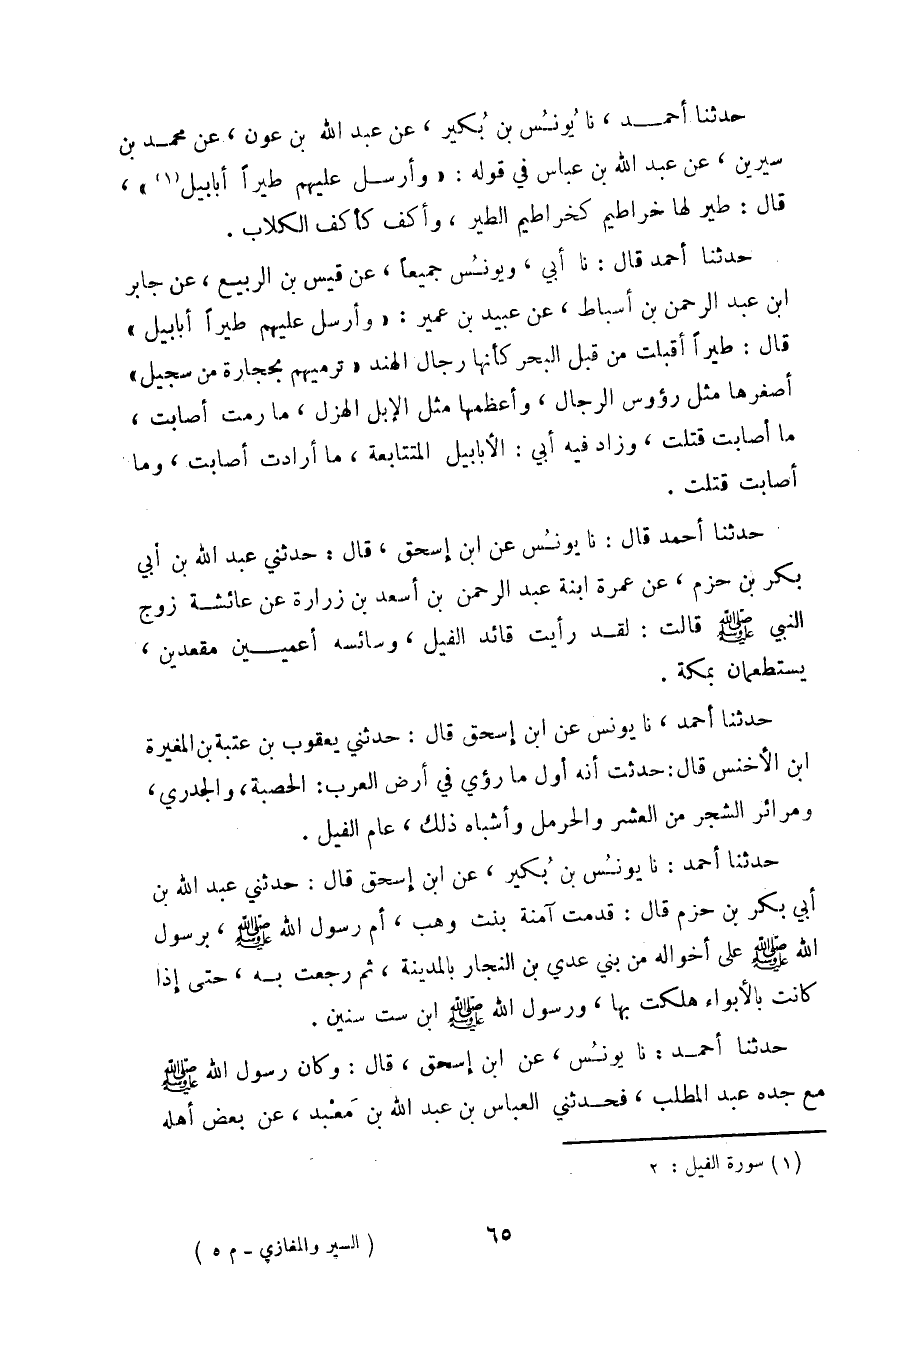 حدثنا أحمـــد ، نا يُونُس بن بُكير ، عن عبد الله بن عون ، عن محمـد بن
سيرين ، عن عبد الله بن عباس في قوله : « وأرسـل عليهم طيراً أبابيل(١) » ،
قال : طير لها خراطيم كخراطيم الطير ، وأكف كأكف الكلاب .
حدثنا أحمد قال : نا أبي ، ويونُس جميعاً ، عن قيس بن الربيع ، عن جابر
ابن عبد الرحمن بن أسباط ، عن عبيد بن عمير : « وأرسل عليهم طيراً أبابيل »
قال : طيراً أقبلت من قبل البحر كأنها رجال الهند « ترميهم بحجارة من سجيل»
أصغرها مثل رؤوس الرجال ، وأعظمها مثل الإبل الهزل ، ما رمت أصابت ،
ما أصابت قتلت ، وزاد فيه أبي : الأبابيل المتتابعة ، ما أرادت أصابت ، وما
أصابت قتلت .
حدثنا أحمد قال : نا يونُس عن ابن إسحق ، قال : حدثني عبد الله بن أبي
بكر بن حزم ، عن عمرة ابنة عبد الرحمن بن أسعد بن زرارة عن عائشـة زوج
النبي ﷺ قالت : لقـد رأيت قائد الفيل ، وسائسه أعميـــين مقعدين ،
يستطعمان بمكة .
حدثنا أحمد ، نا يونس عن ابن إسحق قال : حدثني يعقوب بن عتبة بن المغيرة
ابن الأخنس قال: حدثت أنه أول ما رؤي في أرض العرب: الحصبة، والجدري،
ومرائر الشجر من العشر والحرمل وأشباه ذلك ، عام الفيل .
حدثنا أحمد : نا يونُس بن بُكير ، عن ابن إسحق قال : حدثني عبد الله بن
أبي بكر بن حزم قال : قدمت آمنة بنت وهب ، أم رسول الله ﷺ ، برسول
الله ﷺ على أخواله من بني عدي بن النجار بالمدينة ، ثم رجعت بـه ، حتى إذا
كانت بالأبواء هلكت بها ، ورسول الله ﷺ ابن ست سنين .
حدثنا أحمـد : نا يونُس ، عن ابن إسحق ، قال : وكان رسول الله ﷺ
مع جده عبد المطلب ، فحـدثني العباس بن عبد الله بن مَعْبد ، عن بعض أهله
(١) سورة الفيل : ٢
٦٥
( السير والمغازي - م ٥ )